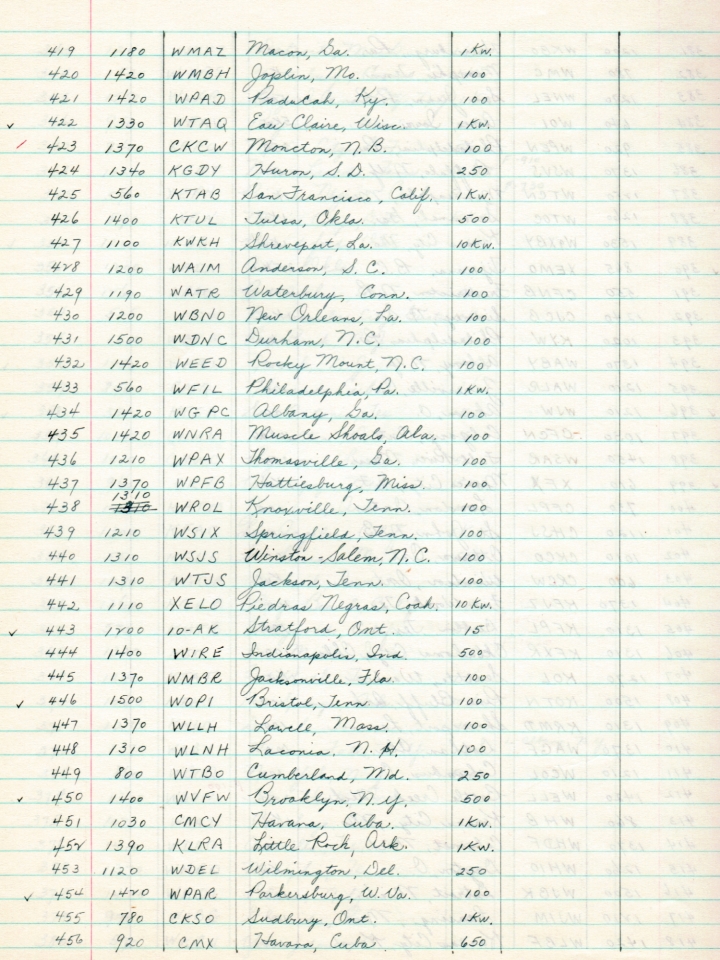 419 1180 WMAZ Macon, Ga. 1 Kw.
420 1420 WMBH Joplin, Mo. 100
421 1420 WPAD Paducah, Ky. 100
✓ 422 1330 WTAQ Eau Claire, Wisc. 1 Kw.
/ 423 1370 CKCW Moncton, N.B. 100
424 1340 KGDY Huron, S.D. 250
425 560 KTAB San Francisco, Calif. 1 Kw.
426 1400 KTUL Tulsa, Okla. 500
427 1100 KWKH Shreveport, La. 10 Kw.
428 1200 WAIM Anderson, S.C. 100
429 1190 WATR Waterbury, Conn. 100
430 1200 WBNO New Orleans, La. 100
431 1500 WDNC Durham, N.C. 100
432 1420 WEED Rocky Mount, N.C. 100
433 560 WFIL Philadelphia, Pa. 1 Kw.
434 1420 WGPC Albany, Ga. 100
435 1420 WNRA Muscle Shoals, Ala. 100
436 1210 WPAX Thomasville, Ga. 100
437 1370 WPFB Hattiesburg, Miss. 100
438 1310 WROL Knoxville, Tenn. 100
439 1210 WSIX Springfield, Tenn. 100
440 1310 WSJS Winston-Salem, N.C. 100
441 1310 WTJS Jackson, Tenn. 100
442 1110 XELO Piedras Negras, Coah. 10 Kw.
✓ 443 1200 10-AK Stratford, Ont. 15
444 1400 WIRE Indianapolis, Ind. 500
445 1370 WMBR Jacksonville, Fla. 100
✓ 446 1500 WOPI Bristol, Tenn 100
447 1370 WLLH Lowell, Mass. 100
448 1310 WLNH Laconia, N.H. 100
449 800 WTBO Cumberland, Md. 250
✓ 450 1400 WVFW Brooklyn, N.Y. 500
451 1030 CMCY Havana, Cuba. 1 Kw.
452 1390 KLRA Little Rock, Ark. 1 Kw.
453 1120 WDEL Wilmington, Del. 250
✓ 454 1420 WPAR Parkersburg, W.Va. 100
455 780 CKSO Sudbury, Ont. 1 Kw.
456 920 CMX Havana, Cuba. 650